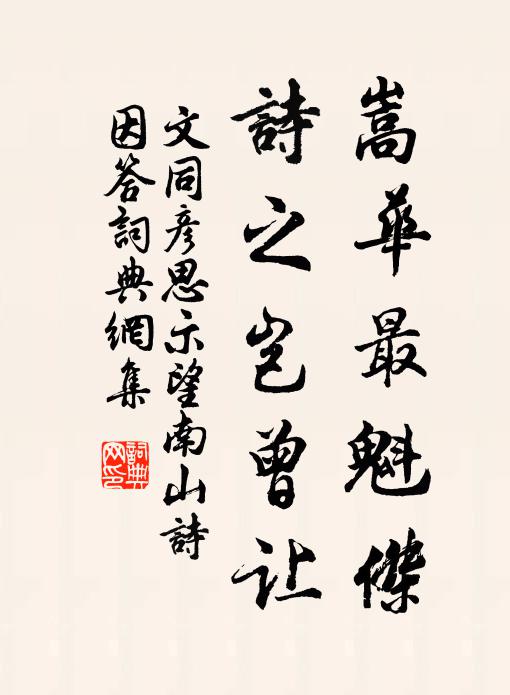 嵩華最魁傑
詩之豈曾让
文同彦思示望南山詩
因答詞典網集
詞典網印